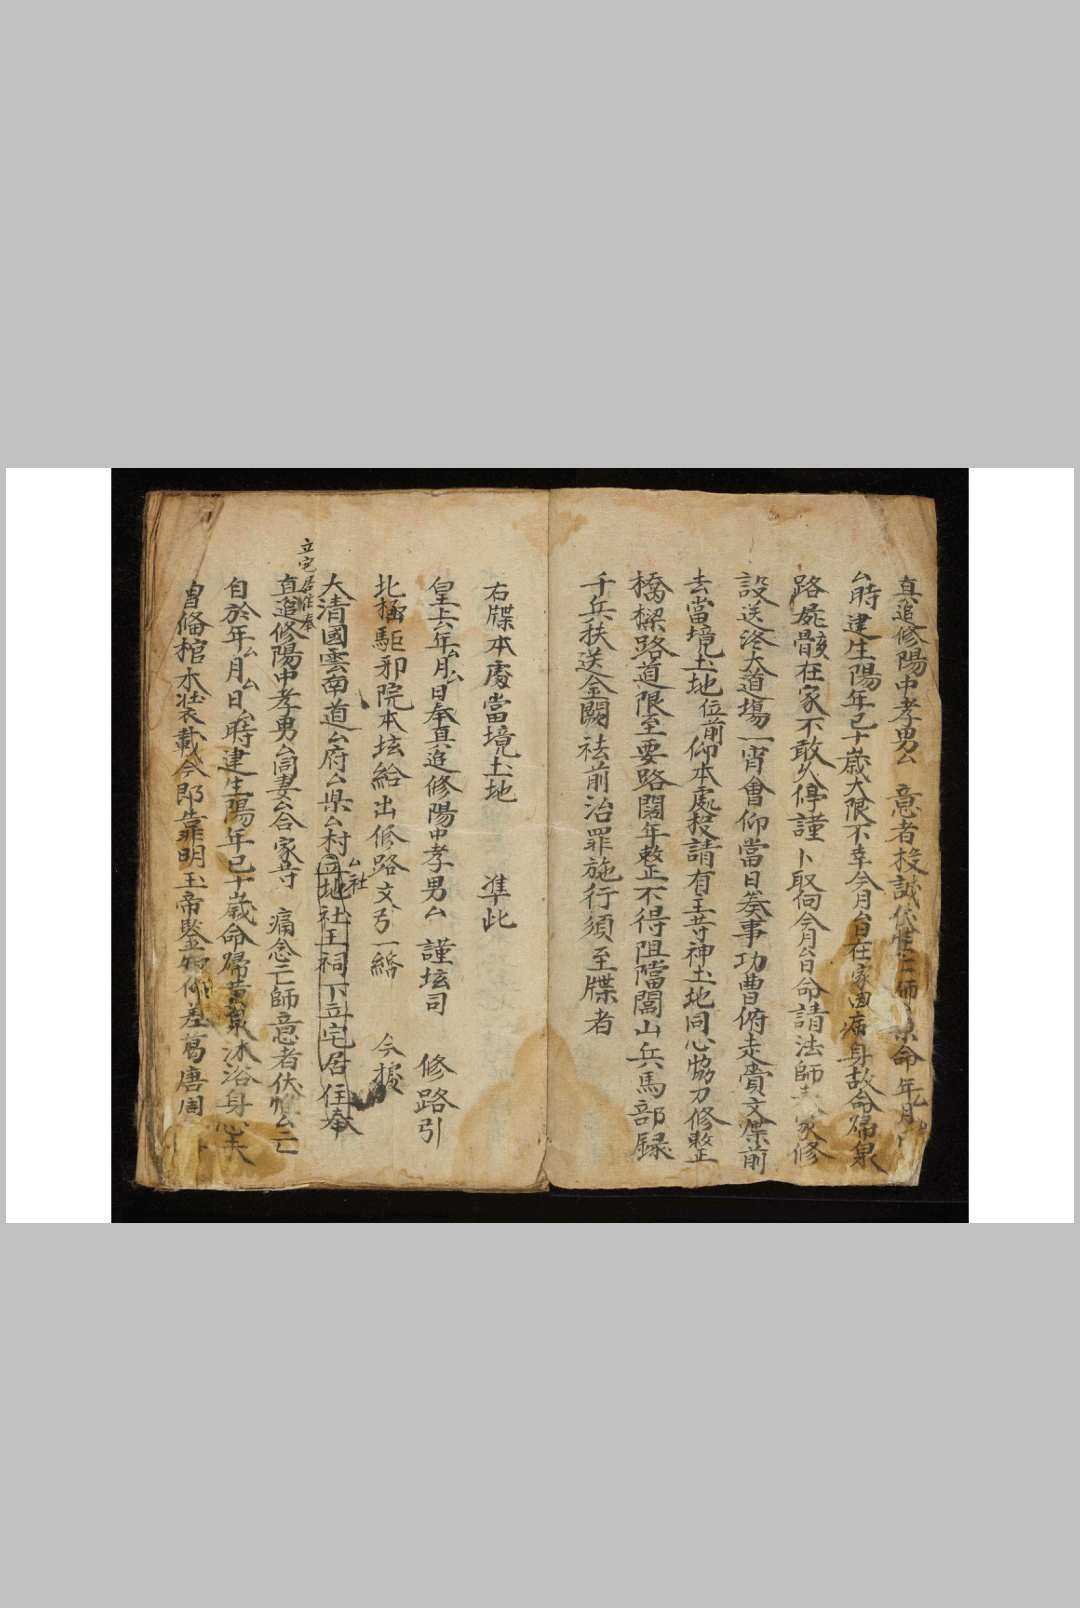 真追修陽中孝男厶　意者投誠伏惟亡師　命年厶月
厶時建生陽年已十歲大限不幸今月厶日在家因病身故命歸泉
路屍骸在家不敢久停謹卜取向今月厶日命請法師　家修
設送終大道場一宵會仰當日奏事功曹俯走賫文牒前
去當境土地位前仰本處投請有王廿神土地同心恊力修整
橋樑路道限至要路闊年整不得阻當閭山兵馬部録
千兵扶送金闕袪前治罪施行須至牒者
右牒本處當境土地　　準此
皇上厶年厶月厶日奉真追修陽中孝男厶　謹坛司　修路引
北極駈邪院本坛給出修路文引一縚　今據
大清國雲南道厶府厶県厶村立地社王祠下立宅居住奉
厶社
立宅居住奉
真追修陽中孝男厶同妻厶合家廿　痛念亡師意者伏惟厶亡
自於年厶月厶日厶時建生陽年已十歲命歸黃泉沐浴身
曾俻棺木裝載今郎靠明玉帝鑒　仰差葛唐周